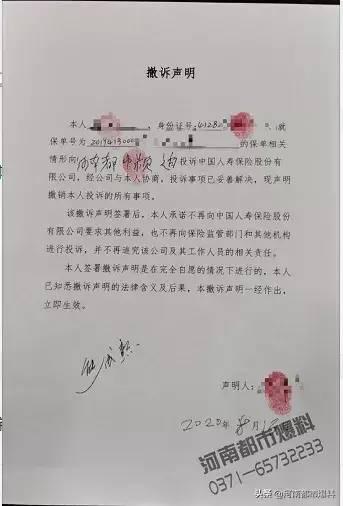 撤诉声明
本人 ，身份证号：4128 ，就
保单号为 2019413000 的保单相关
情形向河南都市频道投诉中国人寿保险股份有
限公司，经公司与本人协商，投诉事项已妥善解决，现声明
撤销本人投诉的所有事项。
该撤诉声明签署后，本人承诺不再向中国人寿保险股份
有限公司要求其他利益，也不再向保险监管部门和其他机构
进行投诉，并不再追究该公司及其工作人员的相关责任。
本人签署撤诉声明是在完全自愿的情况下进行的，本人
已知悉撤诉声明的法律含义及后果，本撤诉声明一经作出，
立即生效。
声明人：
2020年 月
河南都市爆料
0371-65732233
头条@河南都市爆料